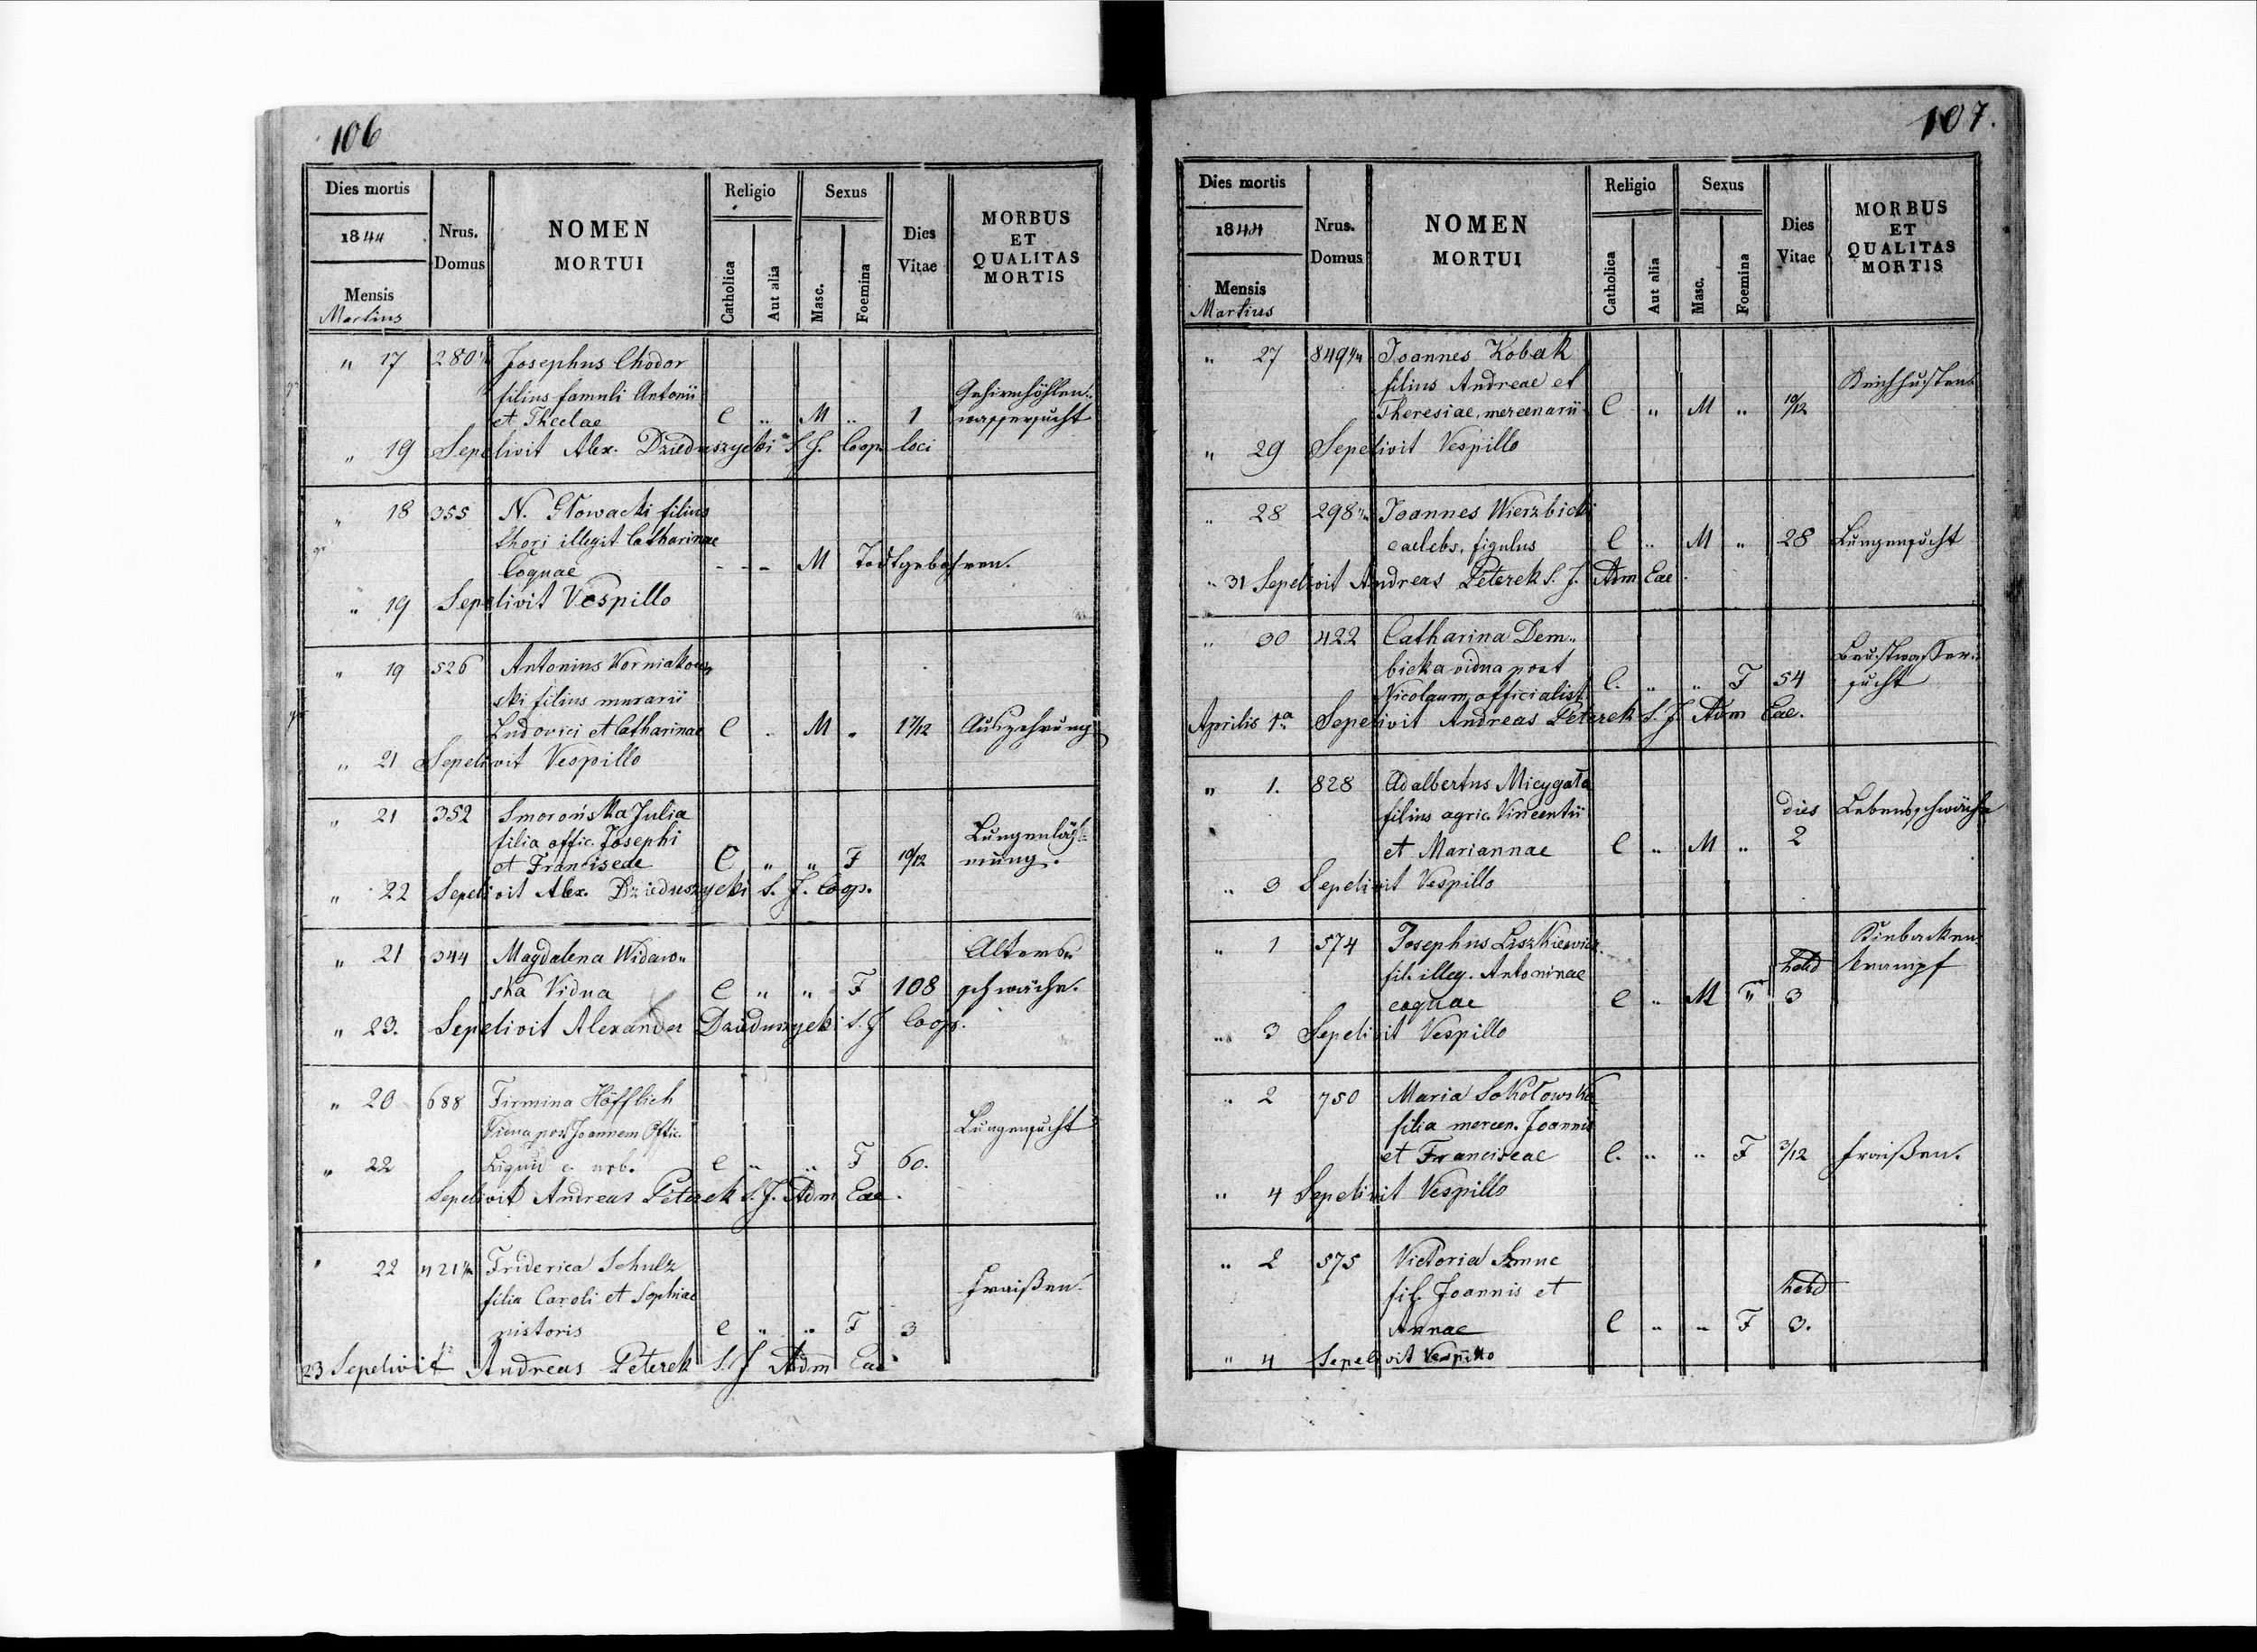 106
Dies mortis
1844
Mensis
Martius
Nrus.
Domus
NOMEN
MORTUI
Religio
Catholica
Aut alia
Sexus
Masc.
Foemina
Dies
Vitae
MORBUS
ET
QUALITAS
MORTIS
" 17 280 Josephus Chodor
filius famuli Antonii
et Theclae C " M " 1 Gehirnhöhlen-
wassersucht
" 19 Sepelivit Alex. Dzieduszycki S. J. Coop. loci
" 18 355 N. Głowacki filius
thori illegit. Catharinae
Coquae - - - M Todtgebohren.
" 19 Sepelivit Vespillo
" 19 526 Antonius Korniakow
ski filius murarii
Ludovici et Catharinae C " M " Auszehrung
" 21 Sepelivit Vespillo
" 21 352 Smorońska Julia
filia offic. Josephi
et Franciscae C " " F 10/12 Lungenläh-
mung.
" 22 Sepelivit Alex. Dzieduszycki S. J. Coop.
" 21 344 Magdalena Widaw"
ska Vidua C " " F 108 Alters"
schwäche.
" 23. Sepelivit Alexander Dzieduszycki S. J. Coop.
" 20 688 Firmina Höfflich
Vidua post Joannem Offic.
" 22 C " " F 60. Lungensucht
Sepelivit Andreas Peterek S. J. Adm Eae.
" 22 421 Friderica Schulz
filia Caroli et Sophiae
pistoris C " " F 3 Fraißen.
23 Sepelivit Andreas Peterek S. J. Adm Eae
107.
Dies mortis
1844
Mensis
Martius
Nrus.
Domus
NOMEN
MORTUI
Religio
Catholica
Aut alia
Sexus
Masc.
Foemina
Dies
Vitae
MORBUS
ET
QUALITAS
MORTIS
" 27 849 Joannes Kobak
filius Andreae et
Theresiae, mercenarii C " M " 10/12 Keichhusten.
" 29 Sepelivit Vespillo
" 28 298 Joannes Wierzbicki
caelebs, figulus C " M " 28 Lungensucht
" 31 Sepelivit Andreas Peterek S. J. Adm Eae.
" 30 422 Catharina Dem"
bicka vidua post
Nicolaum, officialist. C. " " F 54 Brustwasser-
sucht
Aprilis 1a Sepelivit Andreas Peterek S. J. Adm Eae.
" 1. 828 Adalbertus Micygała
filius agric. Vincentii
et Mariannae C " M " dies 2 Lebensschwäche
" 3 Sepelivit Vespillo
" 1 574 Josephus Liszkiewicz
fil. illeg. Antoninae
coquae C " M " hebd 3 Kinbacken
krampf
" 3 Sepelivit Vespillo
" 2 750 Maria Sokołowska
filia mercen. Joannis
et Franciscae C. " " F 3/12 Fraißen.
" 4 Sepelivit Vespillo
" 2 575 Victoria
fil. Joannis et
Annae C " " F hebd 3.
" 4 Sepelivit Vespillo